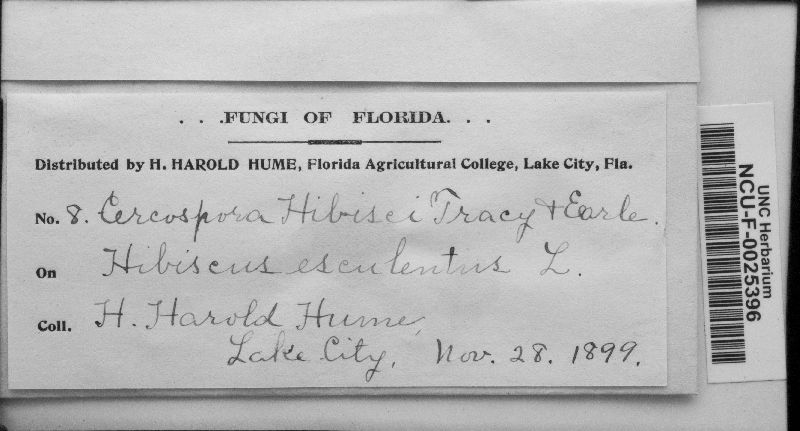 . . .FUNGI OF FLORIDA. . .
Distributed by H. HAROLD HUME, Florida Agricultural College, Lake City, Fla.
No. 8. Cercospora Hibisci Tracy & Earle.
On Hibiscus esculentus L.
Coll. H. Harold Hume,
Lake City, Nov. 28. 1899.
UNC Herbarium
NCU-F-0025396